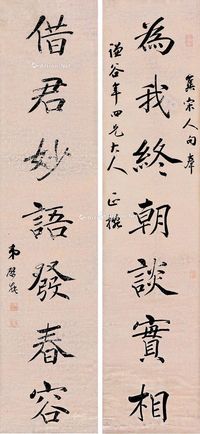 為我終朝談實相
集宋人句奉
謹谷年四兄大人 正椀
借君妙語發春容